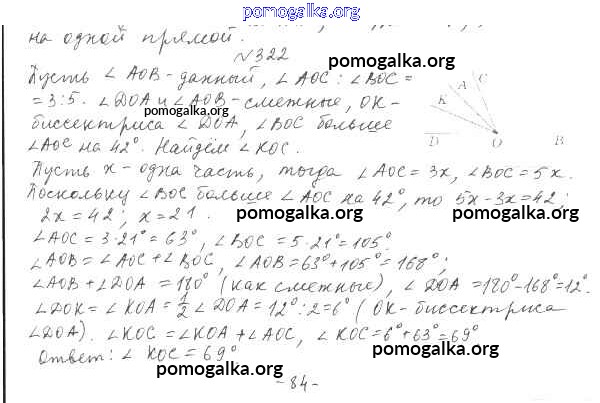 pomogalka.org
на одной прямой.
№322
pomogalka.org
Пусть ∠AOB - данный, ∠AOC : ∠BOC =
= 3:5. ∠DOA и ∠AOB - смежные, OK -
pomogalka.org
биссектриса ∠DOA, ∠BOC больше
∠AOC на 42°. Найдём ∠KOC.
C
A
K
D
O
B
pomogalka.org
Пусть x - одна часть, тогда ∠AOC = 3x, ∠BOC = 5x.
Поскольку ∠BOC больше ∠AOC на 42°, то 5x-3x=42;
2x = 42; x = 21.
pomogalka.org
pomogalka.org
∠AOC = 3·21° = 63°, ∠BOC = 5·21° = 105°.
∠AOB = ∠AOC + ∠BOC, ∠AOB = 63° + 105° = 168°;
∠AOB + ∠DOA = 180° (как смежные), ∠DOA = 180° - 168° = 12°.
∠DOK = ∠KOA = 1/2 ∠DOA = 12° : 2 = 6° (OK - биссектриса
∠DOA). ∠KOC = ∠KOA + ∠AOC, ∠KOC = 6° + 63° = 69°
Ответ: ∠KOC = 69°
pomogalka.org
pomogalka.org
- 84 -